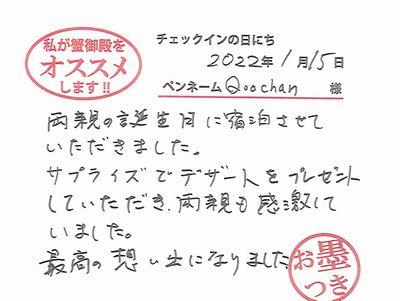 私が蟹御殿を
オススメ
します!!
チェックインの日にち
2022年1月15日
ペンネーム Qoochan 様
両親の誕生月に宿泊させて
いただきました。
サプライズでデザートをプレゼント
していただき、両親も感激して
いました。
最高の想い出になりました
お墨
つき